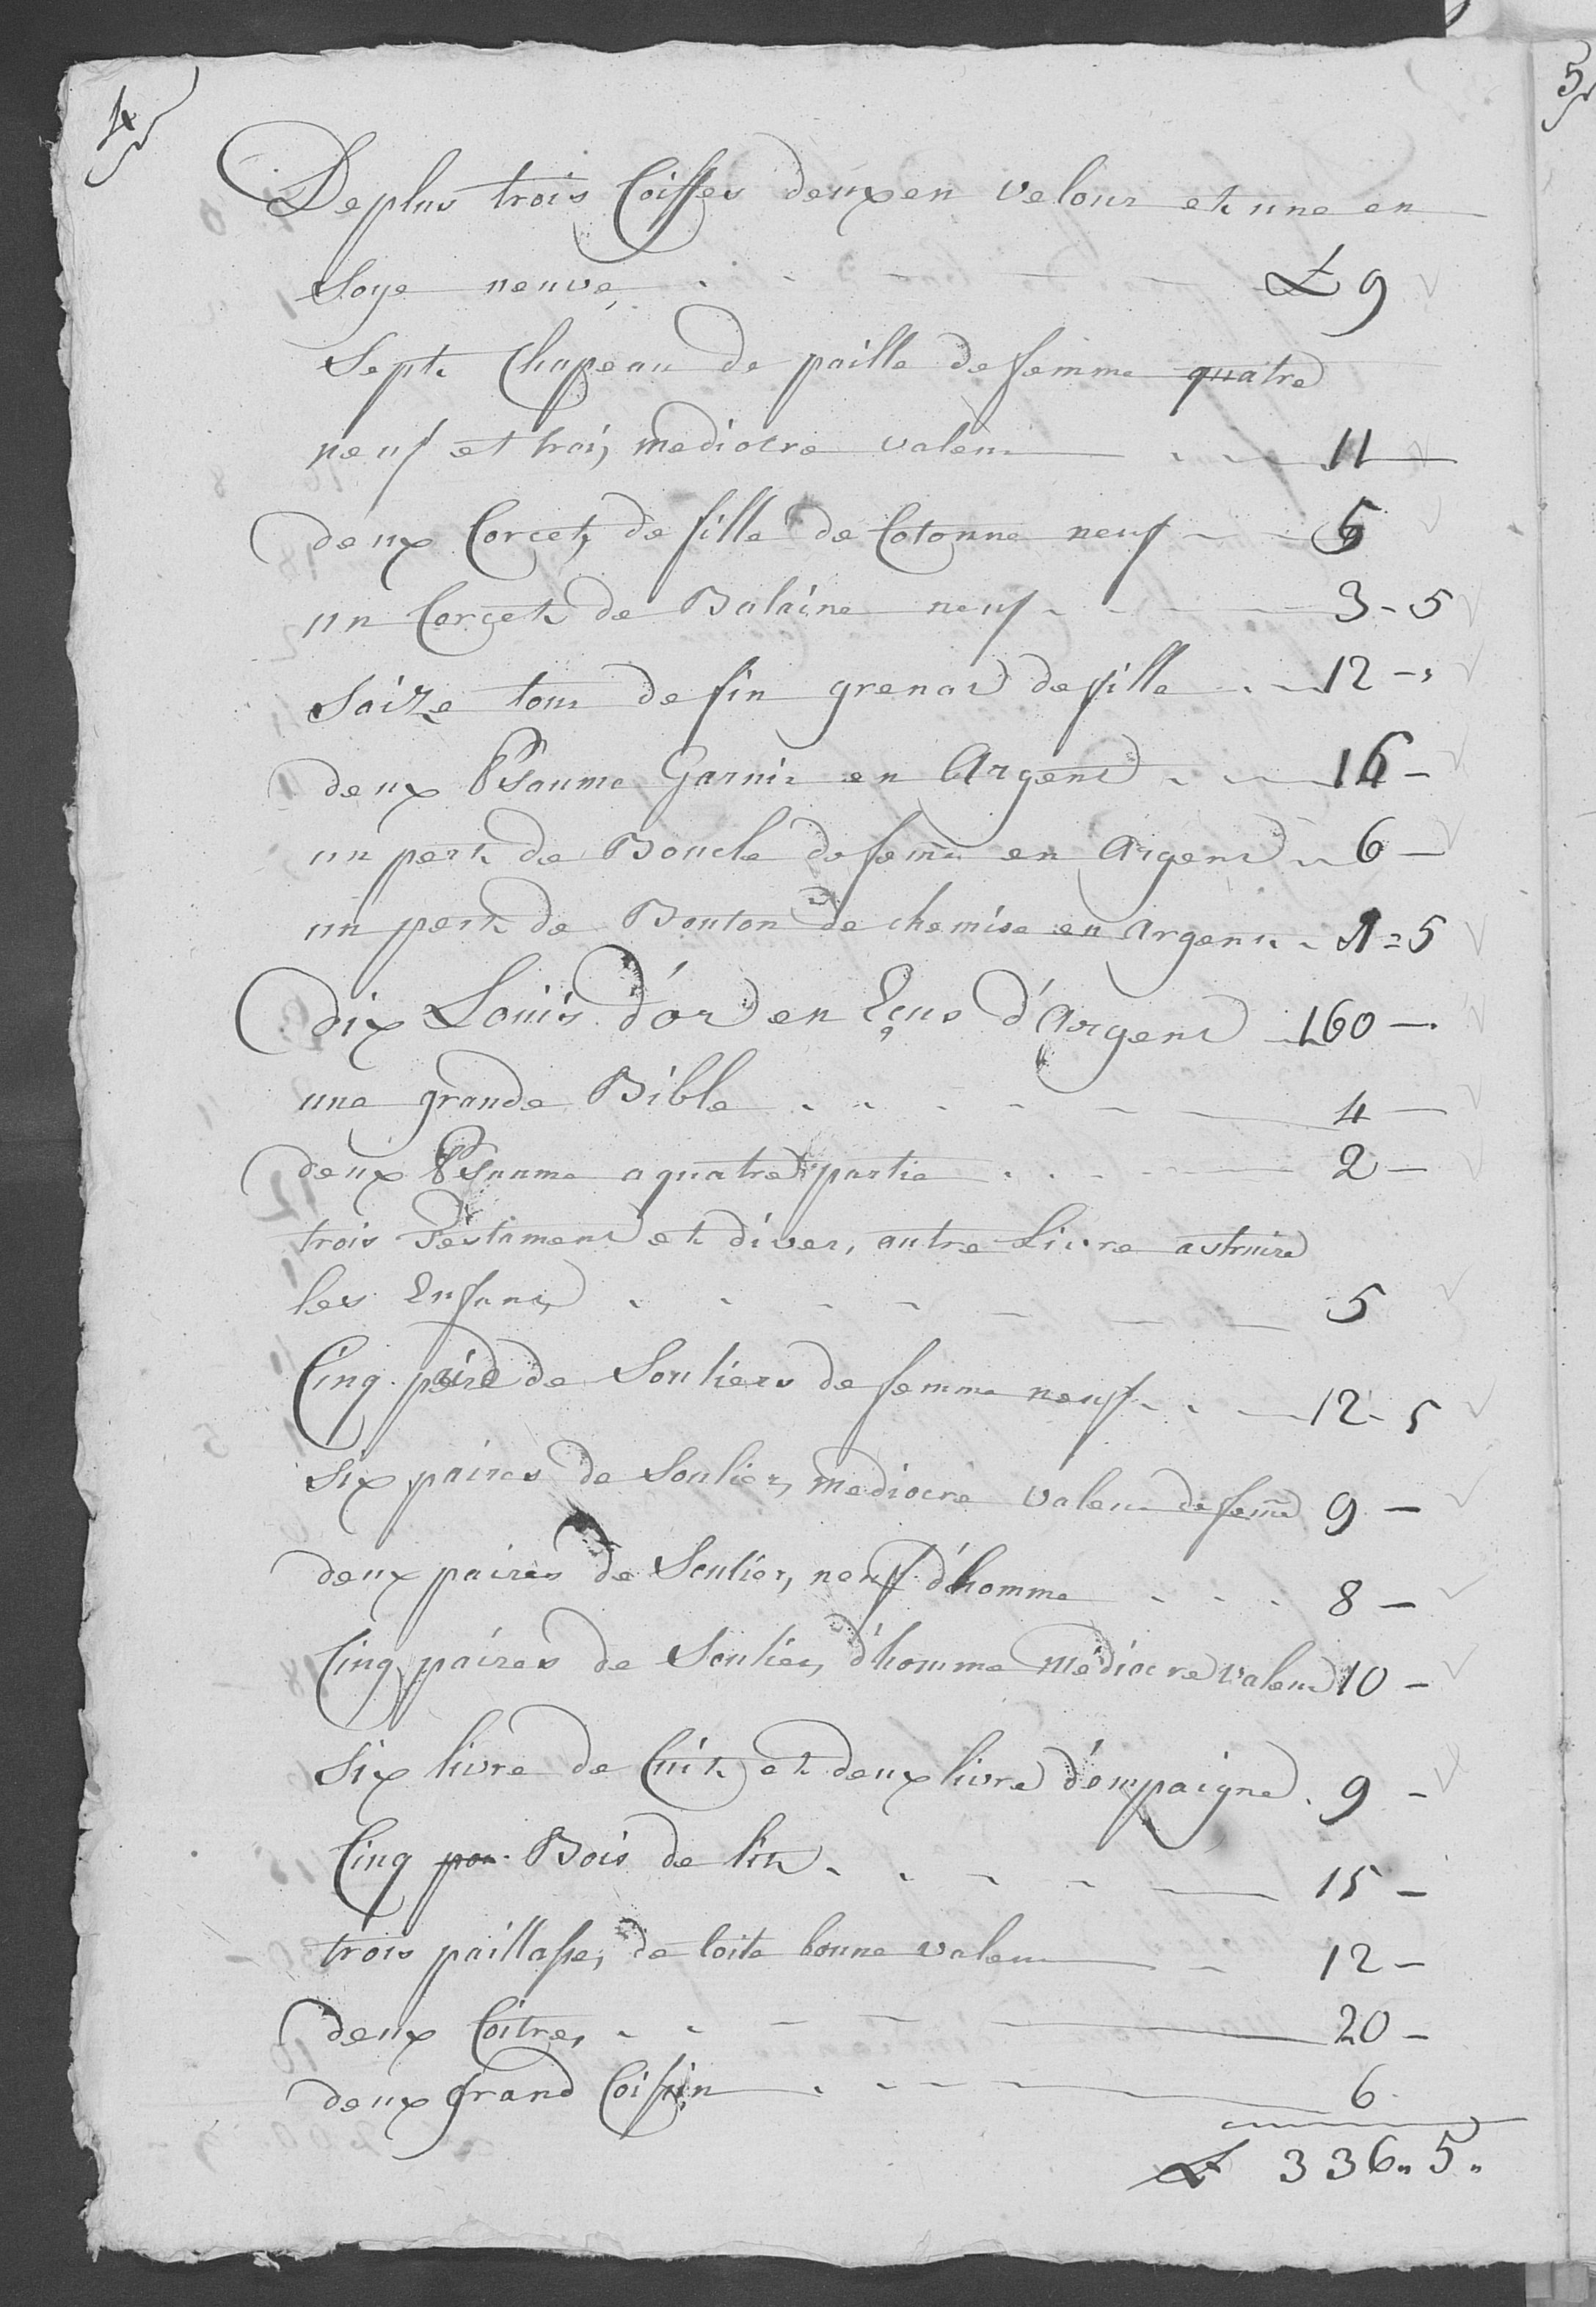 4
5
De plus trois Coiffes deux en velour et une en
Soye neuve £ 9
Sept Chapeau de paille de femme quatre
neuf et trois mediocre valeur 11
deux Corcets de fille de Cotonne neuf 5
un Corcet de Balaine neuf 3-5
Saize tour de fin grenat de fille 12-
deux Psaume Garnir en Argent 16-
un pert de Boucle de feme en Argent 6-
un pert de Bouton de chemise en argent 1=5
dix Louis d'or en Eçus d'Argent 160-
une grande Bible 4-
deux Psaume a quatre partie 2-
trois Testament et divers autre Livre astruire
les Enfants 5
Cinq paire de Souliers de femme neuf 12-5
Six paires de Souliers mediocre valeur de feme 9-
deux paires de Souliers neuf d'homme 8-
Cinq paires de Souliers d'homme mediocre valeur 10-
Six livre de Cuit et deux livre d'empaigne 9-
Cinq pou Bois de lit 15-
trois paillasse, de toile bonne valeur 12-
deux Coitres 20-
deux grand Coissin 6
£ 336" 5"